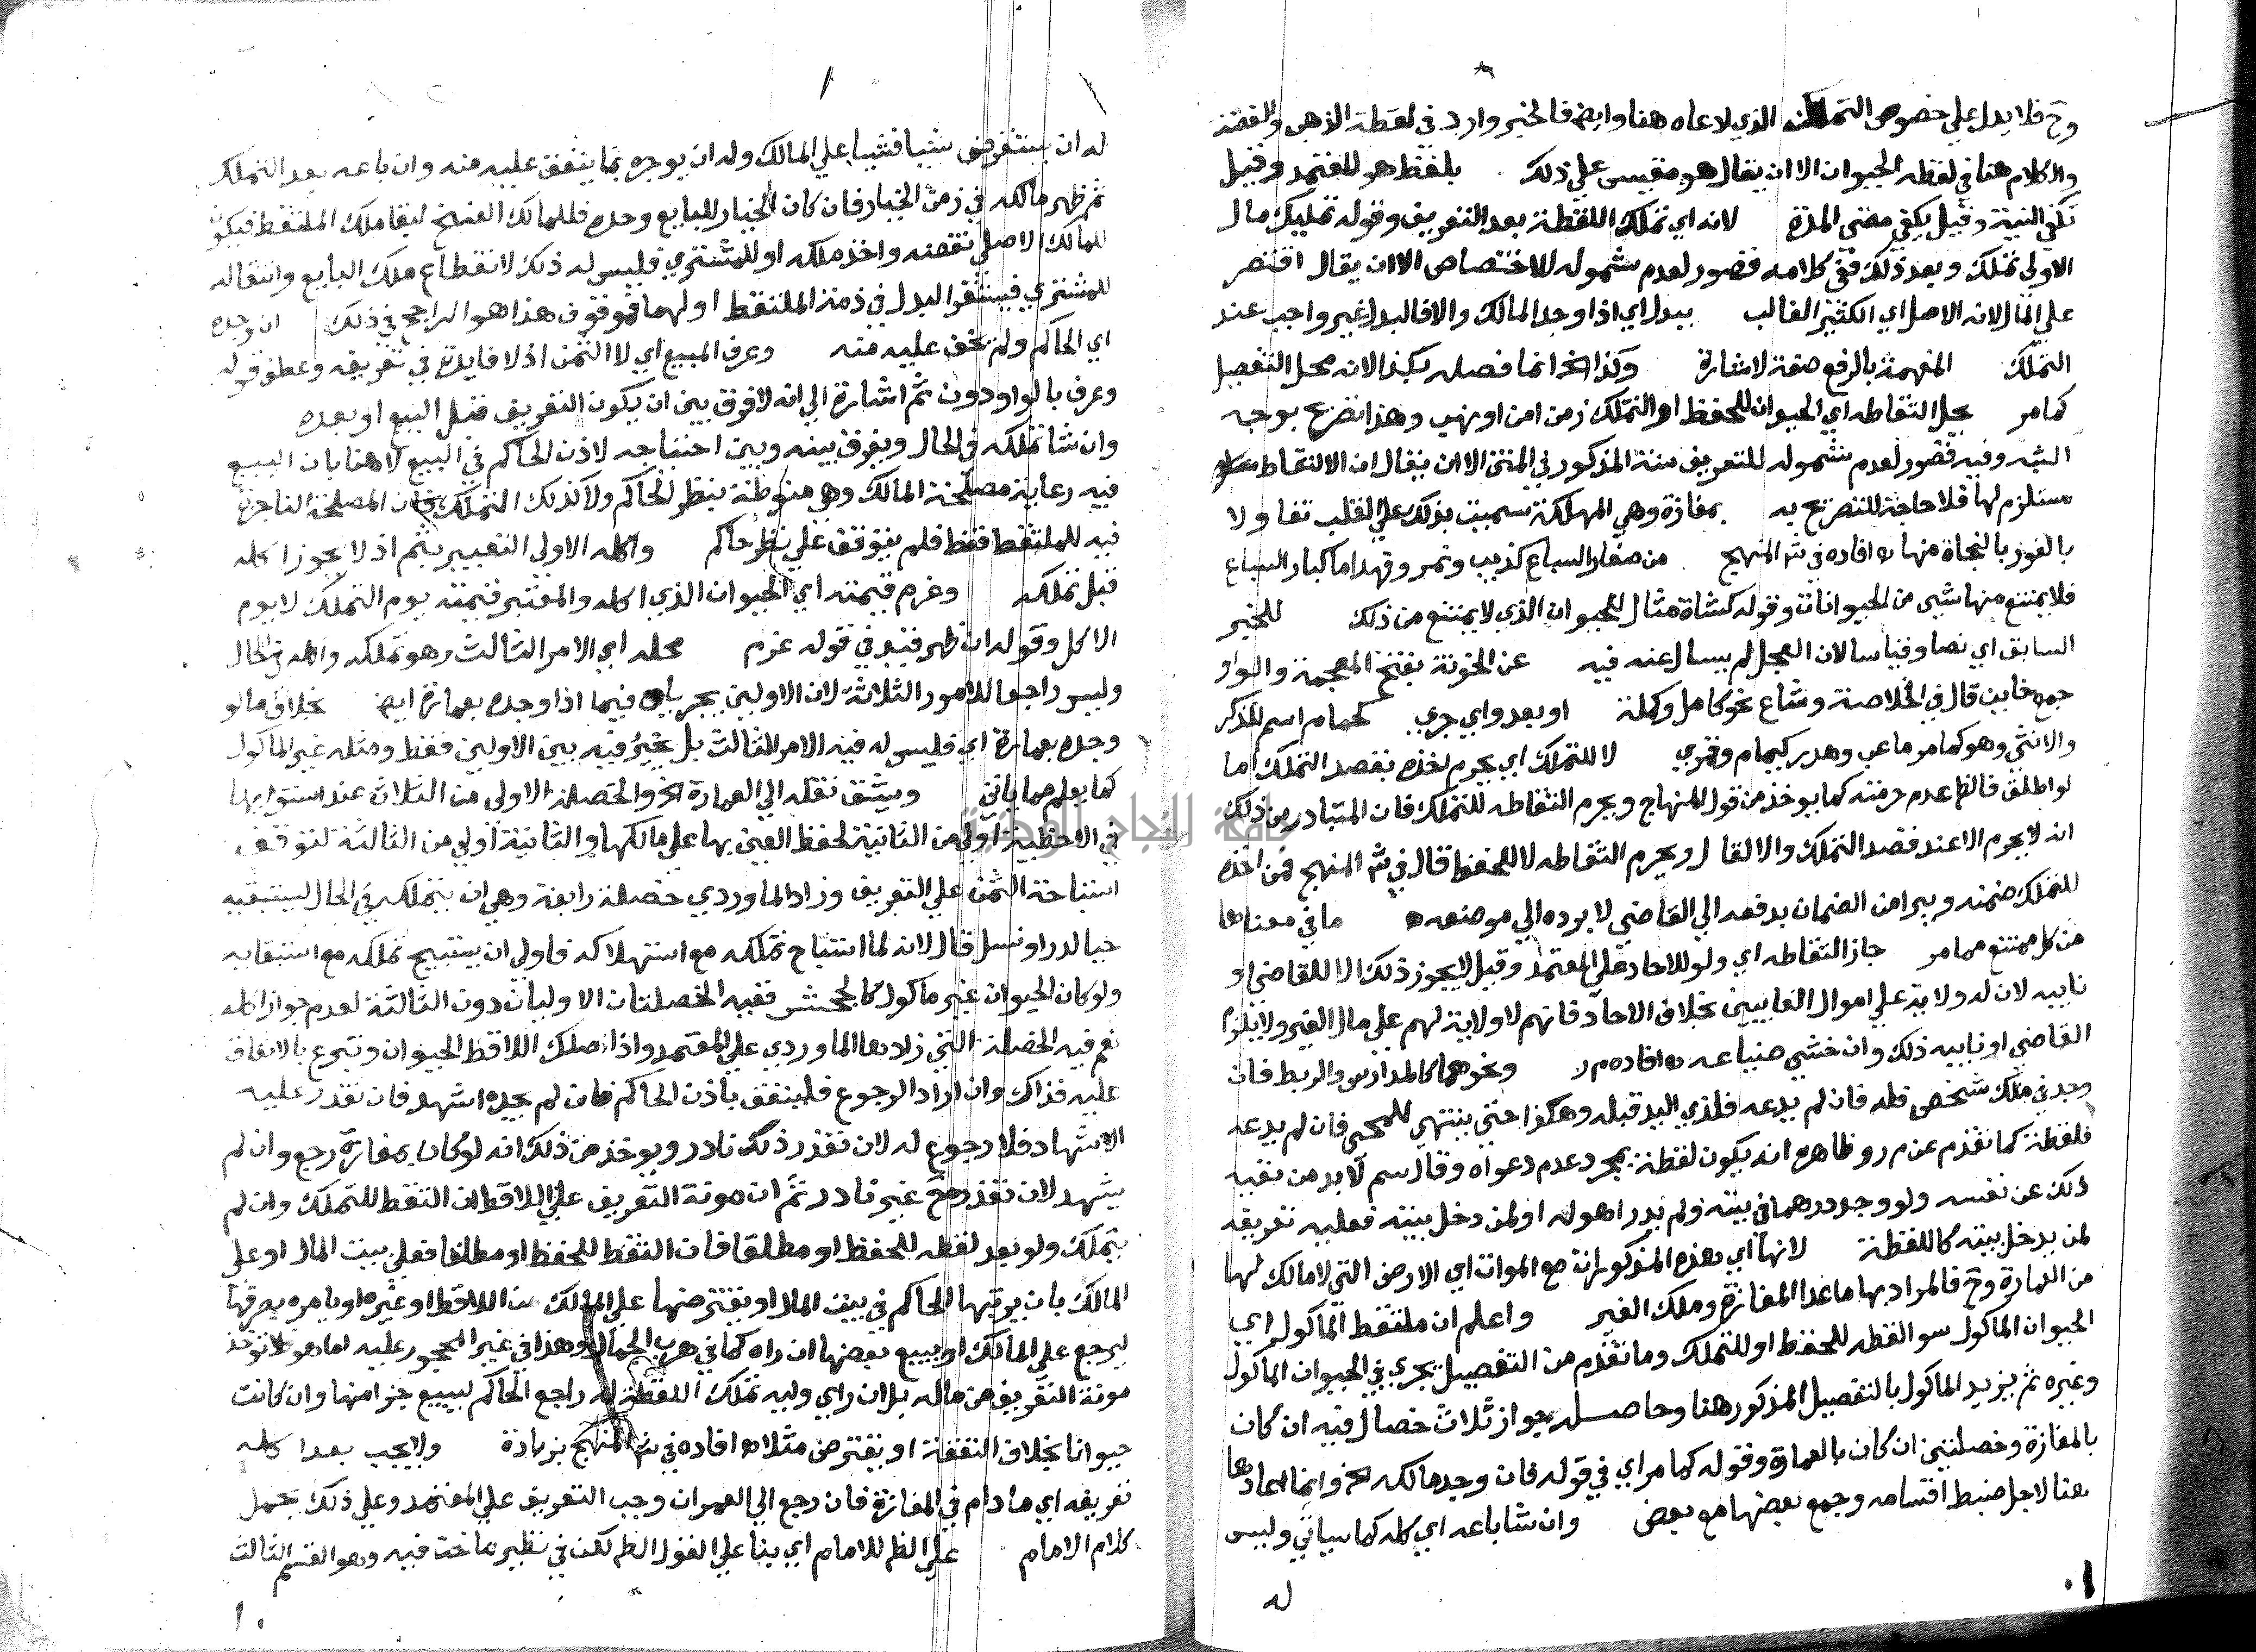 وح فلا يدل على خصوص التملك الذي ادعاه هنا وايض فالخبر وارد في لقطة الذهب والفضة
والكلام هنا في لقطة الحيوان الا ان يقال هو مقيس على ذلك بلفظ هو المعتمد وقيل
تكفي النية وقيل يكفي مضي المدة لانه اي تملك اللقطة بعد التعريف وقوله تمليك مال
الاولى تملك وبعد ذلك ففي كلامه قصور لعدم شموله للاختصاص الا ان يقال اقتصر
على المال لانه الاصل اي الكثير الغالب ببدل اي اذا وجد المالك والا فالبدل غير واجب عند
التملك المفهمة بالرفع صفة لاشارة وكذا الخ انما فصله بكذا لانه محل التفصيل
كما مر يحل التقاطه اي الحيوان للحفظ او التملك زمن امن او نهب وهذا تصريح بوجه
الشبه وفيه قصور لعدم شموله للتعريف سنة المذكور في المتن الا ان يقال ان الالتقاط
مستلزم لها فلا حاجة للتصريح به بمفازة وهي المهلكة سميت بذلك على القلب تفاولا
بالفوز بالنجاة منها اه افاده في شه المنهج من صغار السباع كذيب ونمر وفهد اما كبار السباع
فلا يمتنع منها شي من الحيوانات وقوله كشاة مثال للحيوان الذي لا يمتنع من ذلك للخبر
السابق اي نصا وقياسا لان العجل لم يسال عنه فيه عن الخونة بفتح المعجمة والواو
جمع خاين قال في الخلاصة وشاع نحو كامل وكملة او بعدو اي جري كحمام اسم للذكر
والانثى وهو كما مر ما عب وهدر كيمام وقمري لا للتملك اي يحرم اخذه بقصد التملك اما
لو اطلق فالظ عدم حرمته كما يوخذ من قول المنهاج ويحرم التقاطه للتملك فان المتبادر من ذلك
انه لا يحرم الا عند قصد التملك والا لقال ويحرم التقاطه لا للحفظ قال في شه المنهج فمن اخذه
للتملك ضمنه ويبرا من الضمان بدفعه الى القاضي لا برده الى موضعه ما في معناها
من كل ممتنع مما مر جاز التقاطه اي ولو للاحاد على المعتمد وقيل لا يجوز ذلك الا للقاضي او
نايبه لان له ولاية على اموال الغايبين بخلاف الاحاد فانهم لا ولاية لهم على مال الغير ولا يلزم
القاضي او نايبه ذلك وان خشي ضياعه اه افاده م ر ونحوهما كالمدارس والربط فان
وجد في ملك شخص فله فان لم يدعه فلذي اليد قبله وهكذا حتى ينتهي للمحيي فان لم يدعه
فلقطة كما تقدم عن م ر وظاهره انه يكون لقطة بمجرد عدم دعواه وقال سم لا بد من نفيه
ذلك عن نفسه ولو وجد درهما في بيته ولم يدر اهو له او لمن دخل بيته فعليه تعريفه
لمن يدخل بيته كاللقطة لانها اي هذه المذكورات مع الموات اي الارض التي لا مالك لها
من العمارة وح فالمراد بها ما عدا المفازة وملك الغير واعلم ان ملتقط الماكول اي
الحيوان الماكول سوا لقطه للحفظ او للتملك وما تقدم من التفصيل يجري في الحيوان الماكول
وغيره ثم يزيد الماكول بالتفصيل المذكور هنا وحاصله جواز ثلاث خصال فيه ان كان
بالمفازة وخصلتين ان كان بالعمارة وقوله كما مر اي في قوله فان وجد مالكه الخ وانما اعادها
هنا لاجل ضبط اقسامه وجمع بعضها مع بعض وان شا باعه اي كله كما سياتي وليس
له
له ان يستقرض شيا فشيا على المالك وله ان يوجره بما ينفق عليه منه وان باعه بعد التملك
ثم ظهر مالكه في زمن الخيار فان كان الخيار للبايع وحده فللمالك الفسخ لبقا ملك الملتقط فيكون
للمالك الاصلي نقضه واخذ ملكه او للمشتري فليس له ذلك لانقطاع ملك البايع وانتقاله
للمشتري فيستقر البدل في ذمة الملتقط او لهما فموقوف هذا هو الراجح في ذلك ان وجده
اي الحاكم ولم يخف عليه منه وعرف المبيع اي لا الثمن اذ لا فايدة في تعريفه وعطف قوله
وعرف بالواو دون ثم اشارة الى انه لا فرق بين ان يكون التعريف قبل البيع او بعده
وان شا تملكه في الحال ويفرق بينه وبين احتياجه لاذن الحاكم في البيع لا هنا بان البيع
فيه رعاية مصلحة المالك وهي منوطة بنظر الحاكم ولا كذلك التملك فان المصلحة الناجزة
فيه للملتقط فقط فلم يتوقف على نظر حاكم واكله الاولى التعبير بثم اذ لا يجوز اكله
قبل تملكه وغرم قيمته اي الحيوان الذي اكله والمعتبر قيمته يوم التملك لا يوم
الاكل وقوله ان ظهر قيد في قوله غرم محله اي الامر الثالث وهو تملكه واكله في الحال
وليس راجعا للامور الثلاثة لان الاولين يجريان فيما اذا وجده بعمارة ايض بخلاف ما لو
وجده بعمارة اي فليس له فيه الامر الثالث بل يخير فيه بين الاولين فقط ومثله غير الماكول
كما يعلم مما ياتي ويشق نقله الى العمارة الخ والخصلة الاولى من الثلاث عند استوايها
في الاحظية اولى من الثانية لحفظ العين بها على مالكها والثانية اولى من الثالثة لتوقف
استباحة الثمن على التعريف وزاد الماوردي خصلة رابعة وهي ان يتملكه في الحال ليستبقيه
حيا لدر او نسل قال لانه لما استباح تملكه مع استهلاكه فاولى ان يستبيح تملكه مع استبقايه
ولو كان الحيوان غير ماكول كالجحش ففيه الخصلتان الاوليان دون الثالثة لعدم جواز اكله
نعم فيه الخصلة التي زادها الماوردي على المعتمد واذا امسك اللاقط الحيوان وتبرع بالانفاق
عليه فذاك وان اراد الرجوع فلينفق باذن الحاكم فان لم يجده اشهد فان تعذر عليه
الاشهاد فلا رجوع له لان تعذر ذلك نادر ويوخذ من ذلك انه لو كان بمفازة رجع وان لم
يشهد لان تعذره ح غير نادر ثم ان مونة التعريف على اللاقط ان التقط للتملك وان لم
يتملك ولو بعد لقطه للحفظ او مطلقا فان التقط للحفظ او مطلقا فعلى بيت المال او على
المالك بان يرتبها الحاكم في بيت المال او يقترضها على المالك من اللاقط او غيره او يامره بصرفها
ليرجع على المالك او يبيع بعضها ان راه كما في هرب الجمال وهذا في غير المحجور عليه اما هو فلا توخذ
مونة التعريف من ماله بل ان راي وليه تملك اللقطة له راجع الحاكم ليبيع جزا منها وان كانت
حيوانا بخلاف النفقة او يقترض مثلا اه افاده في شه المنهج بزيادة ولا يجب بعد اكله
تعريفه اي ما دام في المفازة فان رجع الى العمران وجب التعريف على المعتمد وعلى ذلك يحمل
كلام الامام على الظ للامام اي بنا على القول الظ لكن في نظير ما نحن فيه وهو القسم الثالث